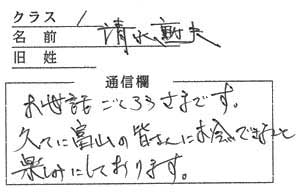 クラス 1
名前 清水
旧姓
通信欄
お世話ごくろうさまです。
久々に富山の皆さんにお会いできること
楽しみにしております。